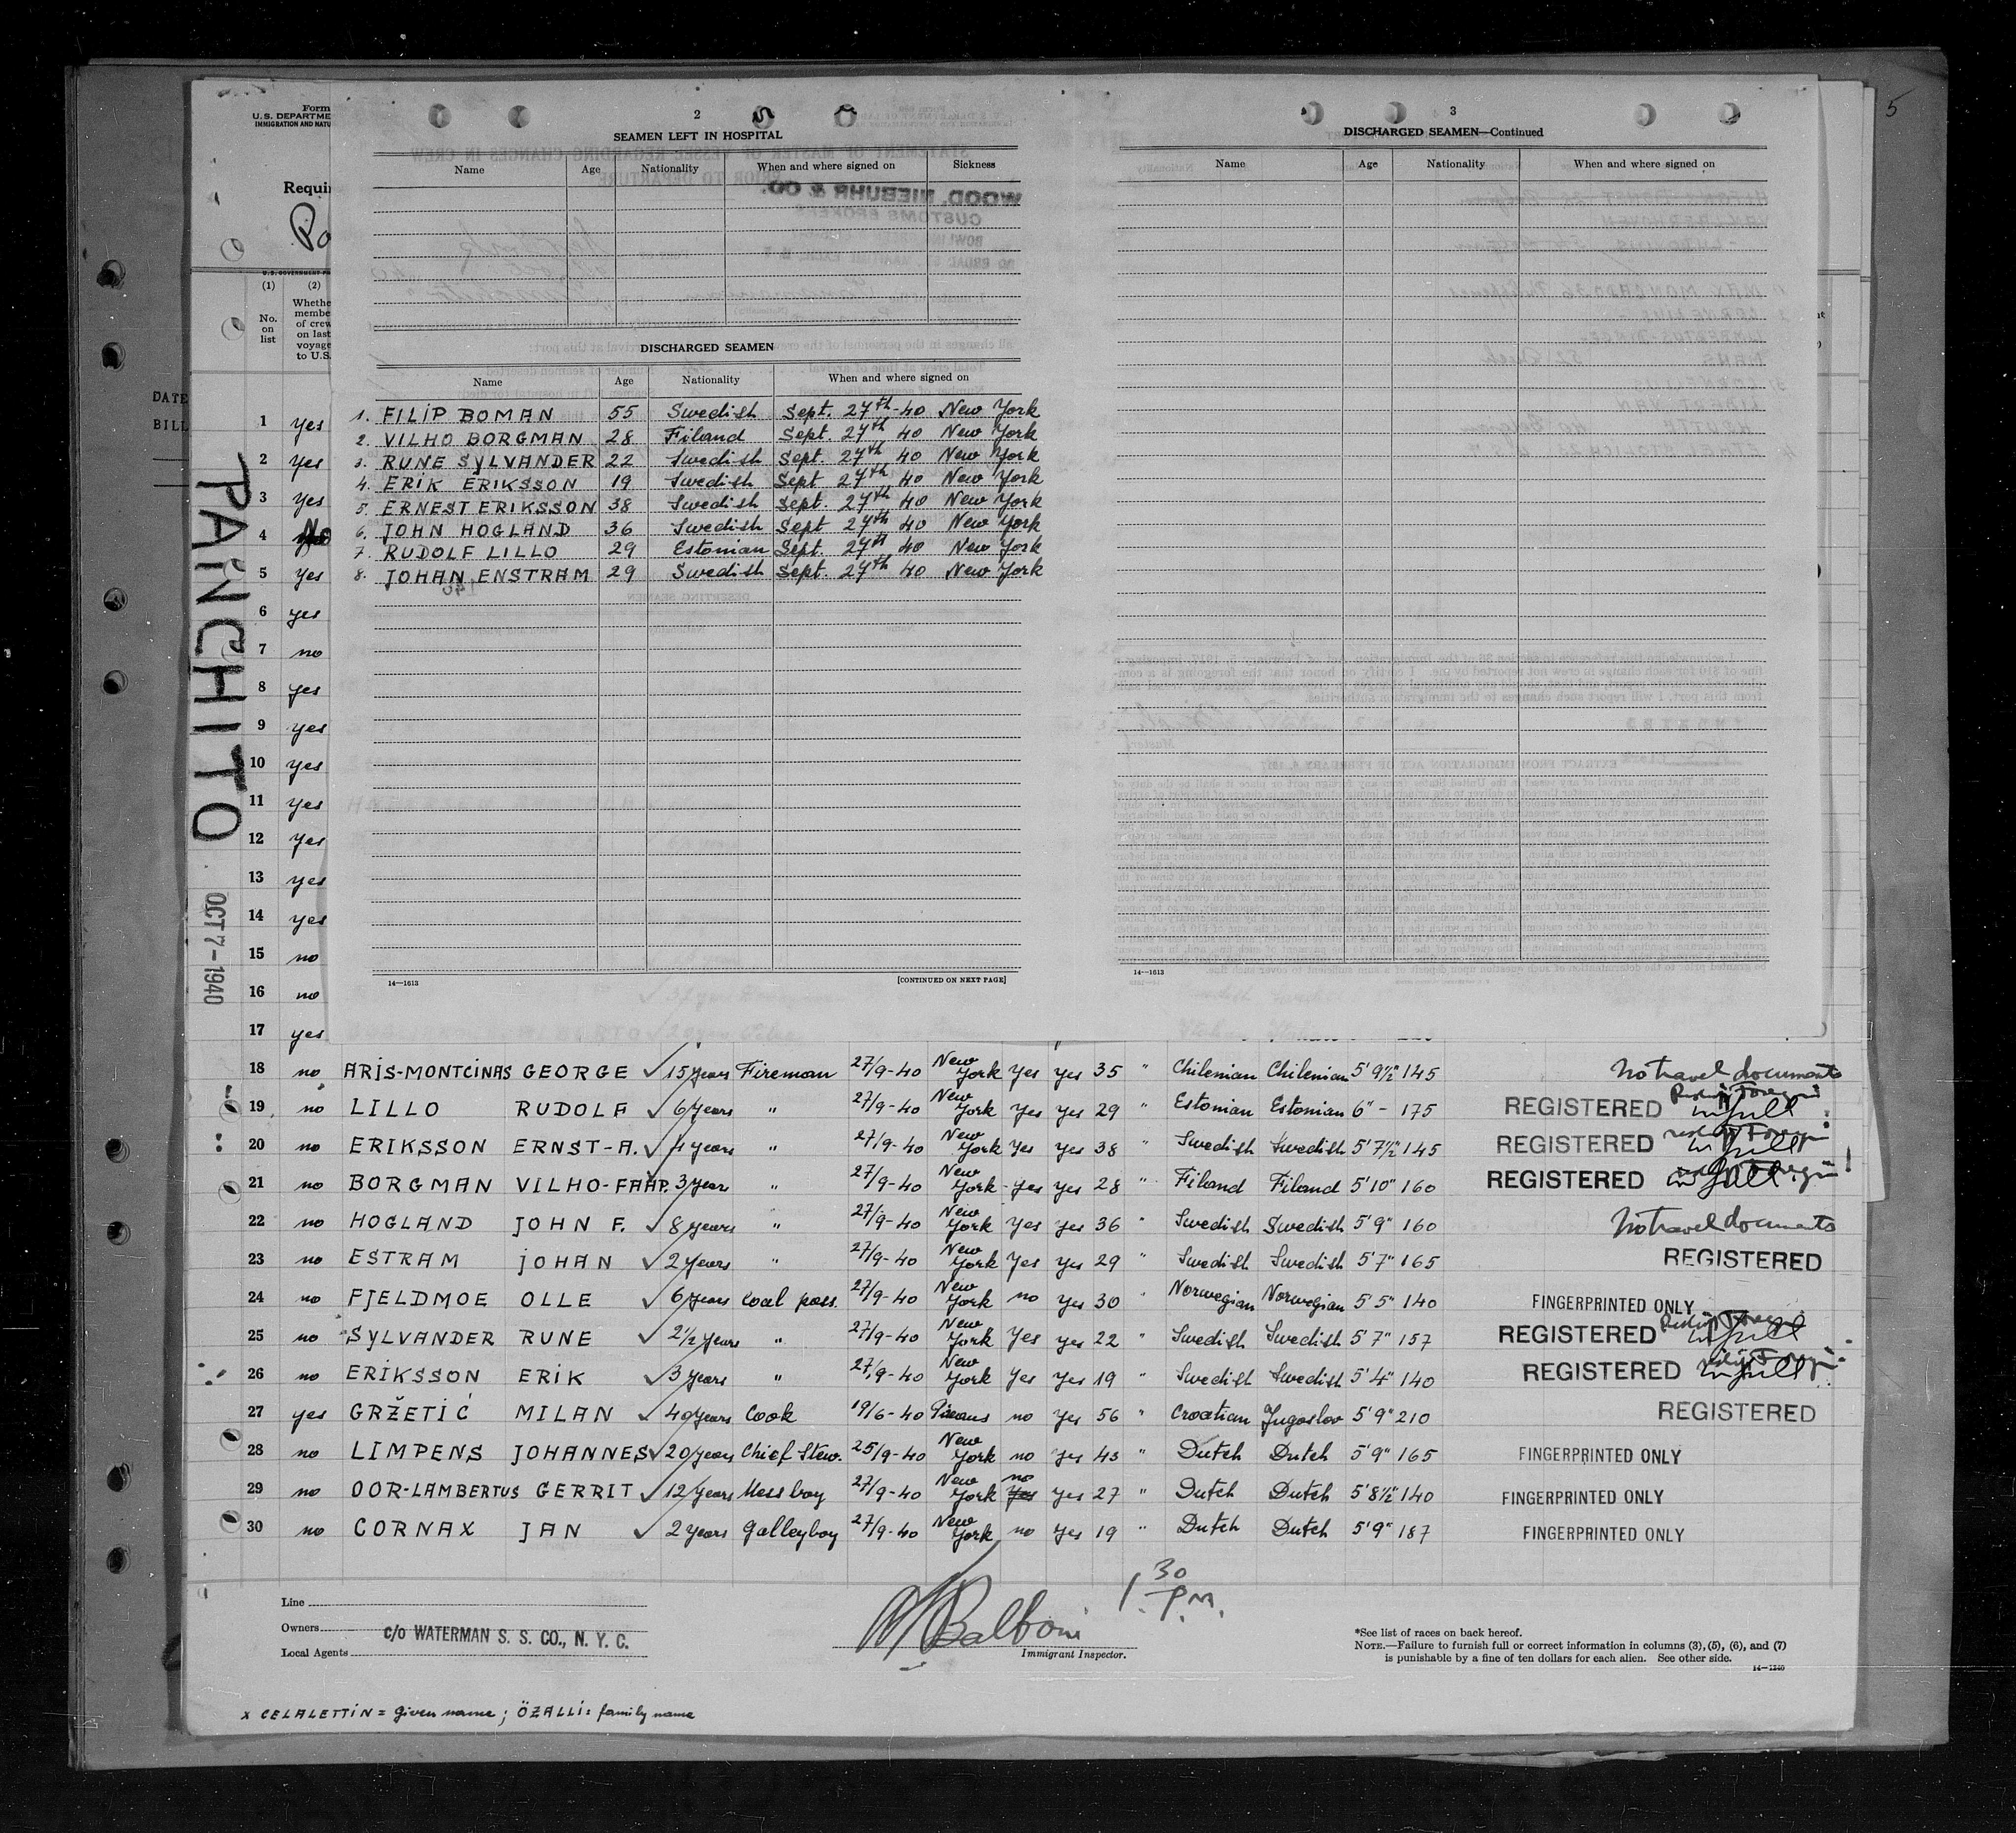 5
Form
U.S. DEPARTME
IMMIGRATION AND NATU
Requir
Pa
U.S. GOVERNMENT
(1) (2)
No. on list
Whethe membe of crew on last voyage to U.S.
DATE
BILL
PANCHITO
OCT 7-1940
1 yes
2 yes
3 yes
4 No
5 yes
6 yes
7 no
8 yes
9 yes
10 yes
11 yes
12 yes
13 yes
14 yes
15 no
16 no
17 yes
2
SEAMEN LEFT IN HOSPITAL
Name Age Nationality When and where signed on Sickness
WOOD, NIEBUHR & CO.
CUSTOMS BROKERS
DISCHARGED SEAMEN
Name Age Nationality When and where signed on
1. FILIP BOMAN 55 Swedish Sept. 27th-40 New York
2. VILHO BORGMAN 28 Filand Sept. 27th 40 New York
3. RUNE SYLVANDER 22 Swedish Sept. 27th 40 New York
4. ERIK ERIKSSON 19 Swedish Sept 27th 40 New York
5. ERNEST ERIKSSON 38 Swedish Sept. 27th 40 New York
6. JOHN HOGLAND 36 Swedish Sept 27th 40 New York
7. RUDOLF LILLO 29 Estonian Sept. 27th 40 New York
8. JOHAN ENSTRAM 29 Swedish Sept. 27th 40 New York
14—1613 [CONTINUED ON NEXT PAGE]
3
DISCHARGED SEAMEN—Continued
Name Age Nationality When and where signed on
14—1613
18 no ARIS-MONTCINAS GEORGE ✓ 15 years Fireman 27/9-40 New York Yes yes 35 " Chilenian Chilenian 5'9½" 145 No travel documents
19 no LILLO RUDOLF ✓ 6 years " 27/9-40 New York Yes yes 29 " Estonian Estonian 6" - 175 REGISTERED in full
20 no ERIKSSON ERNST-A. ✓ 4 years " 27/9-40 New York Yes yes 38 " Swedish Swedish 5'7½" 145 REGISTERED in full
21 no BORGMAN VILHO-FAAP. 3 years " 27/9-40 New York - Yes yes 28 " Filand Filand 5'10" 160 REGISTERED in full
22 no HOGLAND JOHN F. ✓ 8 years " 27/9-40 New York Yes yes 36 " Swedish Swedish 5'9" 160 No travel documents
23 no ESTRAM JOHAN ✓ 2 years " 27/9-40 New York Yes yes 29 " Swedish Swedish 5'7" 165 REGISTERED
24 no FJELDMOE OLLE ✓ 6 years Coal pass. 27/9-40 New York no yes 30 " Norwegian Norwegian 5'5" 140 FINGERPRINTED ONLY
25 no SYLVANDER RUNE ✓ 2½ years " 27/9-40 New York Yes yes 22 " Swedish Swedish 5'7" 157 REGISTERED in full
26 no ERIKSSON ERIK ✓ 3 years " 27/9-40 New York Yes yes 19 " Swedish Swedish 5'4" 140 REGISTERED in full
27 yes GRŽETIĆ MILAN ✓ 40 years Cook 19/6-40 Piraeus no yes 56 " Croatian Jugoslav 5'9" 210 REGISTERED
28 no LIMPENS JOHANNES ✓ 20 years Chief Stew. 25/9-40 New York no yes 43 " Dutch Dutch 5'9" 165 FINGERPRINTED ONLY
29 no OOR-LAMBERTUS GERRIT ✓ 12 years Mess boy 27/9-40 New York no yes 27 " Dutch Dutch 5'8½" 140 FINGERPRINTED ONLY
30 no CORNAX JAN ✓ 2 years Galleyboy 27/9-40 New York no yes 19 " Dutch Dutch 5'9" 187 FINGERPRINTED ONLY
Line
Owners
c/o WATERMAN S. S. CO., N. Y. C.
Local Agents
Balboni
Immigrant Inspector.
1 30 P.M.
*See list of races on back hereof.
NOTE.—Failure to furnish full or correct information in columns (3), (5), (6), and (7)
is punishable by a fine of ten dollars for each alien. See other side.
14—1240
x CELALETTIN = given name; ÖZALLI: family name